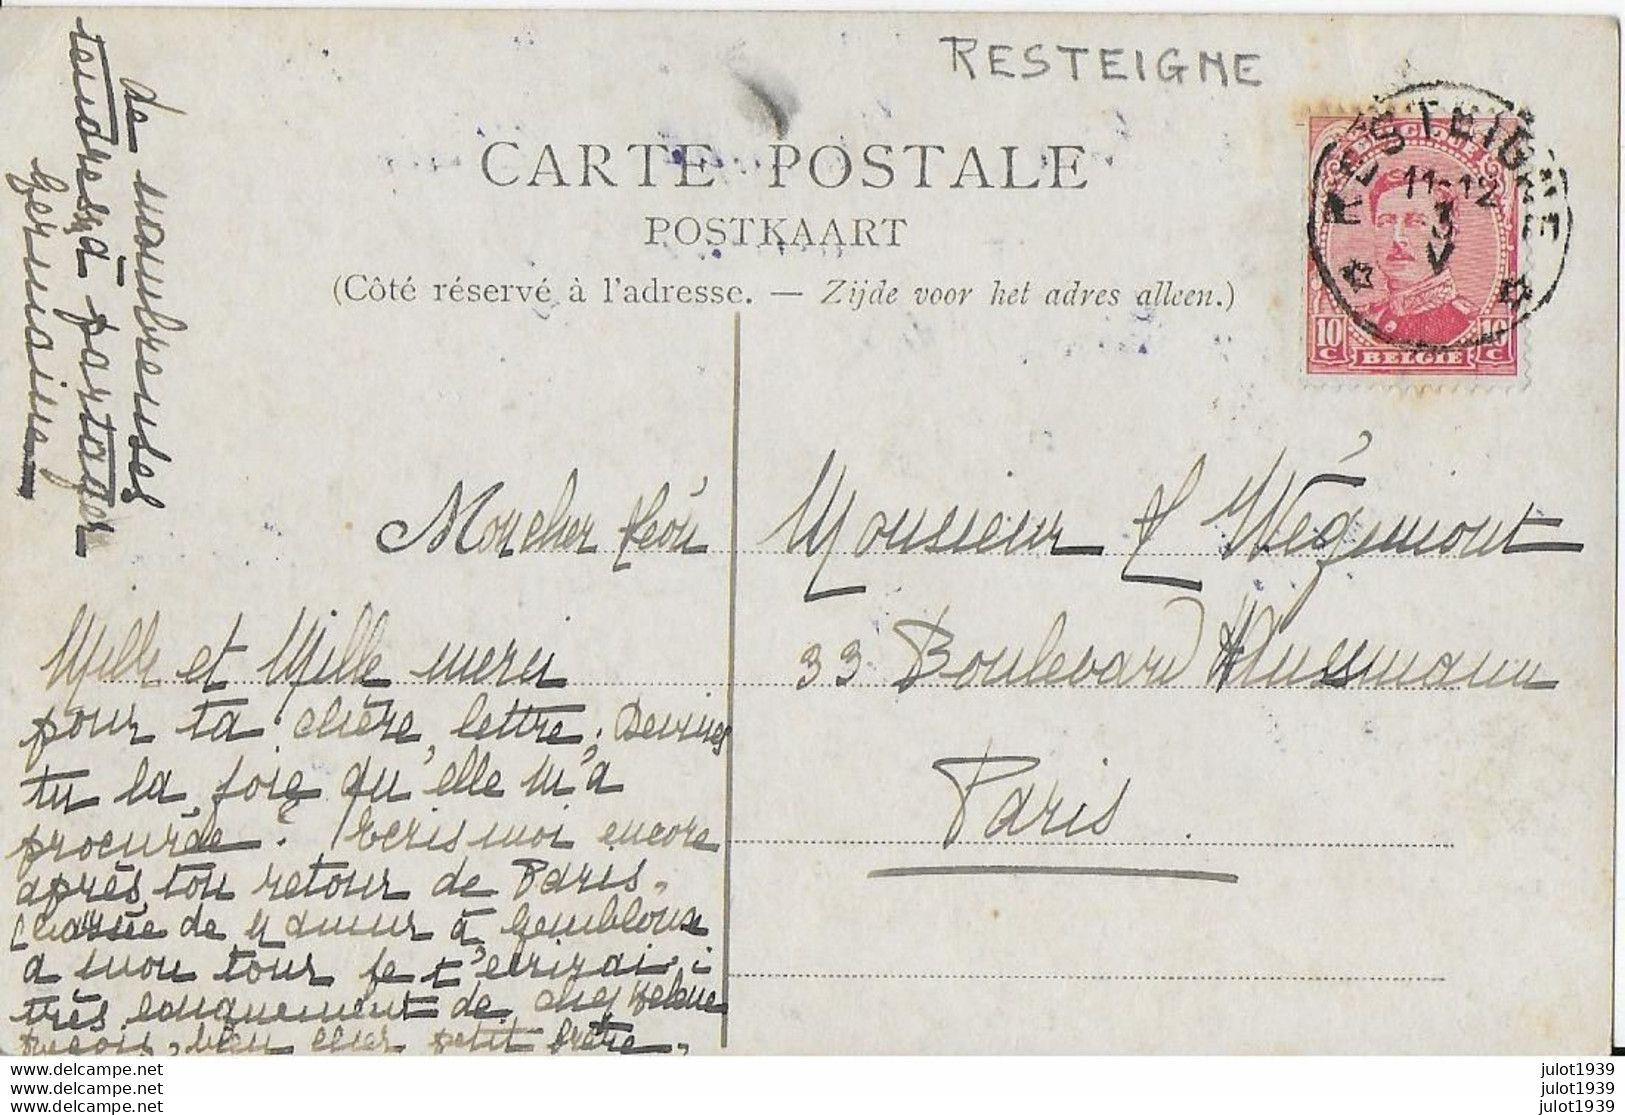 RESTEIGNE
CARTE POSTALE
POSTKAART
(Côté réservé à l'adresse. — Zijde voor het adres alleen.)
RESTEIGNE
11-12
3
V
10 C BELGIË 10 C
Mon cher Léon
Mille et Mille merci
pour ta chère lettre. Devines
tu la joie qu'elle m'a
procurée. Ecris moi encore
après ton retour de Paris.
Chaussée de Namur à Gembloux
a mon tour je t'écrirai
très longuement de chez
reçois, bien cher petit frère,
de nombreuses
tendresses à partager
Germaine
Monsieur L Wégimont
33 Boulevard Haussmann
Paris
www.delcampe.net
www.delcampe.net
www.delcampe.net
julot1939
julot1939
julot1939